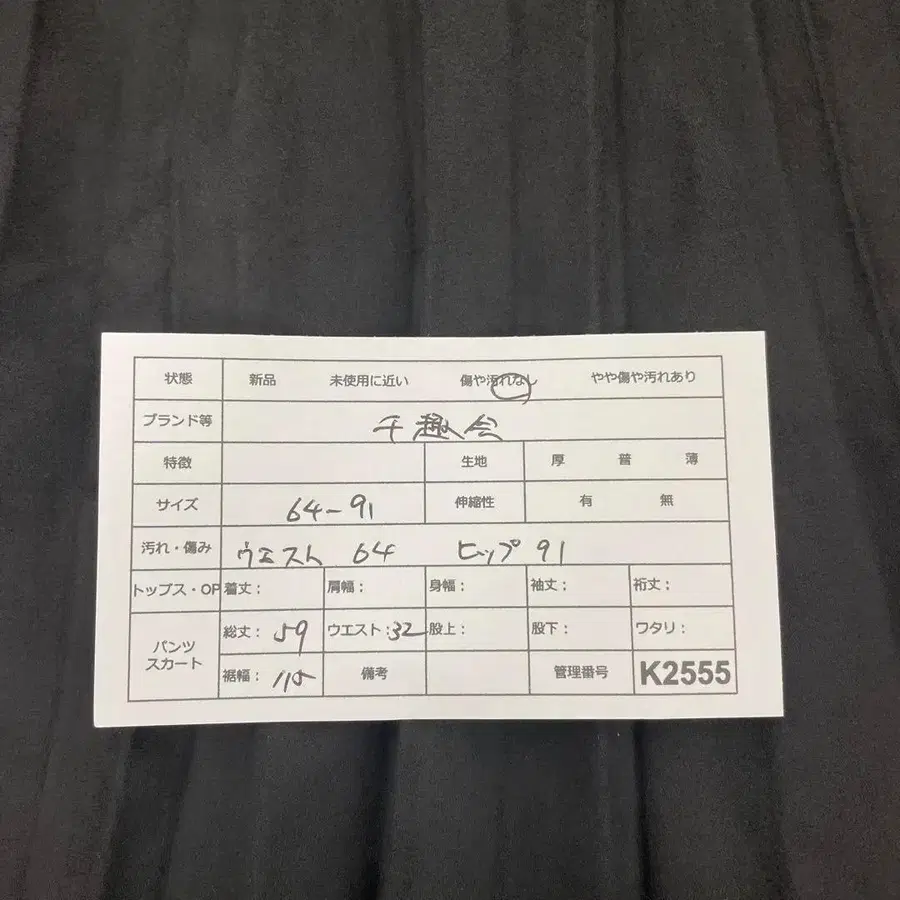 状態 新品 未使用に近い 傷や汚れなし やや傷や汚れあり
ブランド等 千趣会
特徴 生地 厚 普 薄
サイズ 64-91 伸縮性 有 無
汚れ・傷み ウエスト 64 ヒップ 91
トップス・OP 着丈: 肩幅: 身幅: 袖丈: 裄丈:
パンツ スカート 総丈: 59 ウエスト: 32 股上: 股下: ワタリ:
裾幅: 115 備考 管理番号 K2555